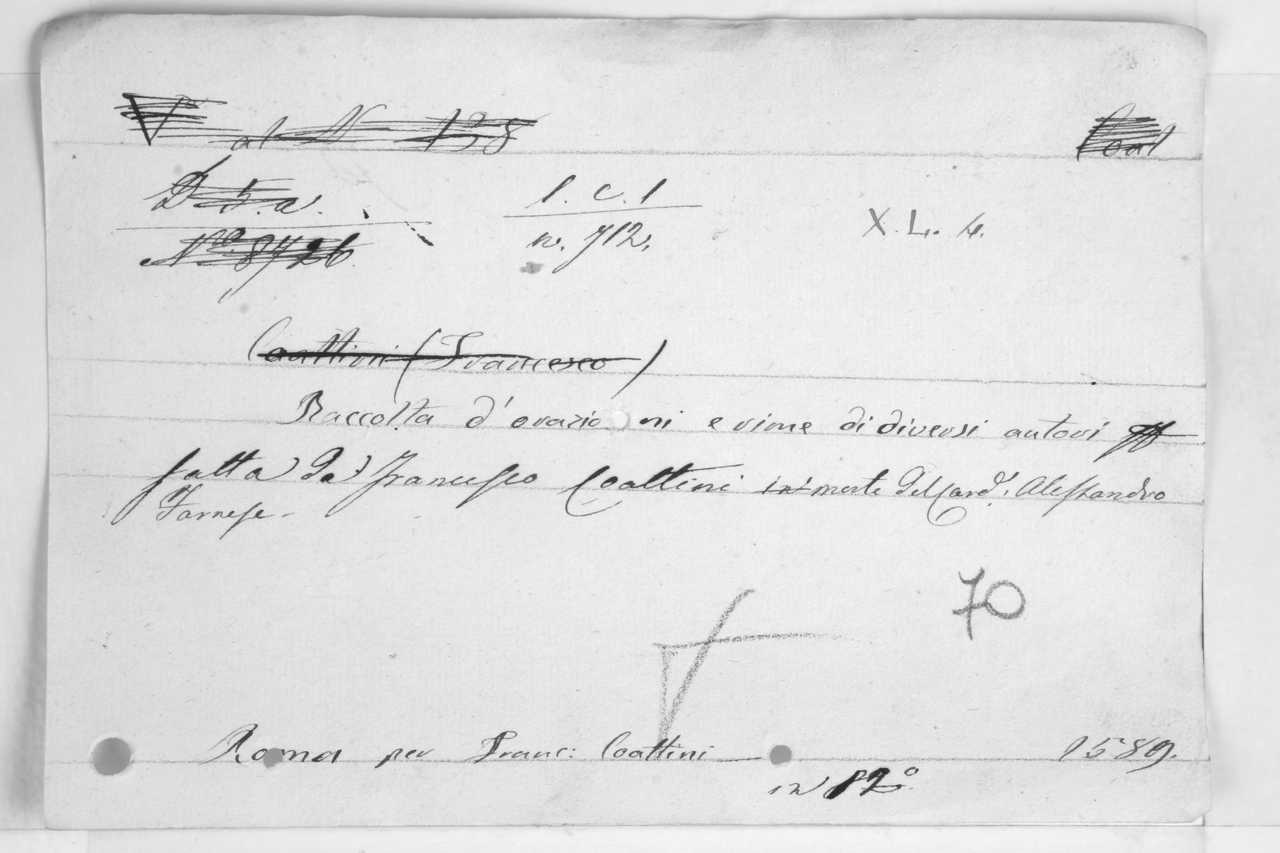 V al N 138
Coat
D 5. a.
1. c. 1
X. L. 4.
No. 8726
n. 712.
Coattini (Francesco)
Raccolta d'orazioni e rime di diversi autori
fatta da Francesco Coattini in morte del Card.l Alessandro
Farnese
70
Roma per Franc: Coattini 1589.
in 12°.